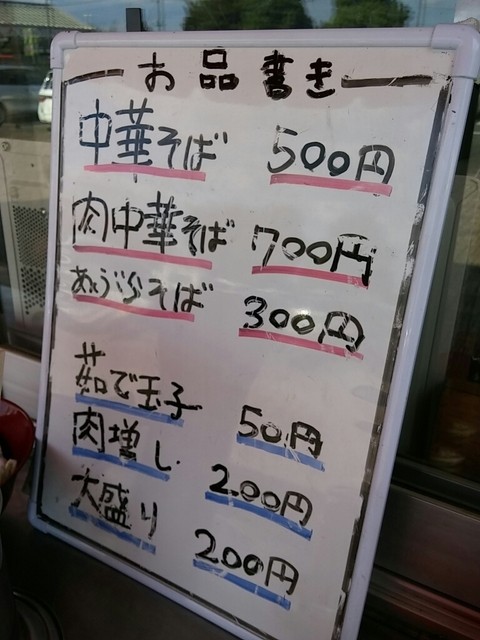 お品書き
中華そば 500円
肉中華そば 700円
そば 300円
茹で玉子 50円
肉増し 200円
大盛り 200円